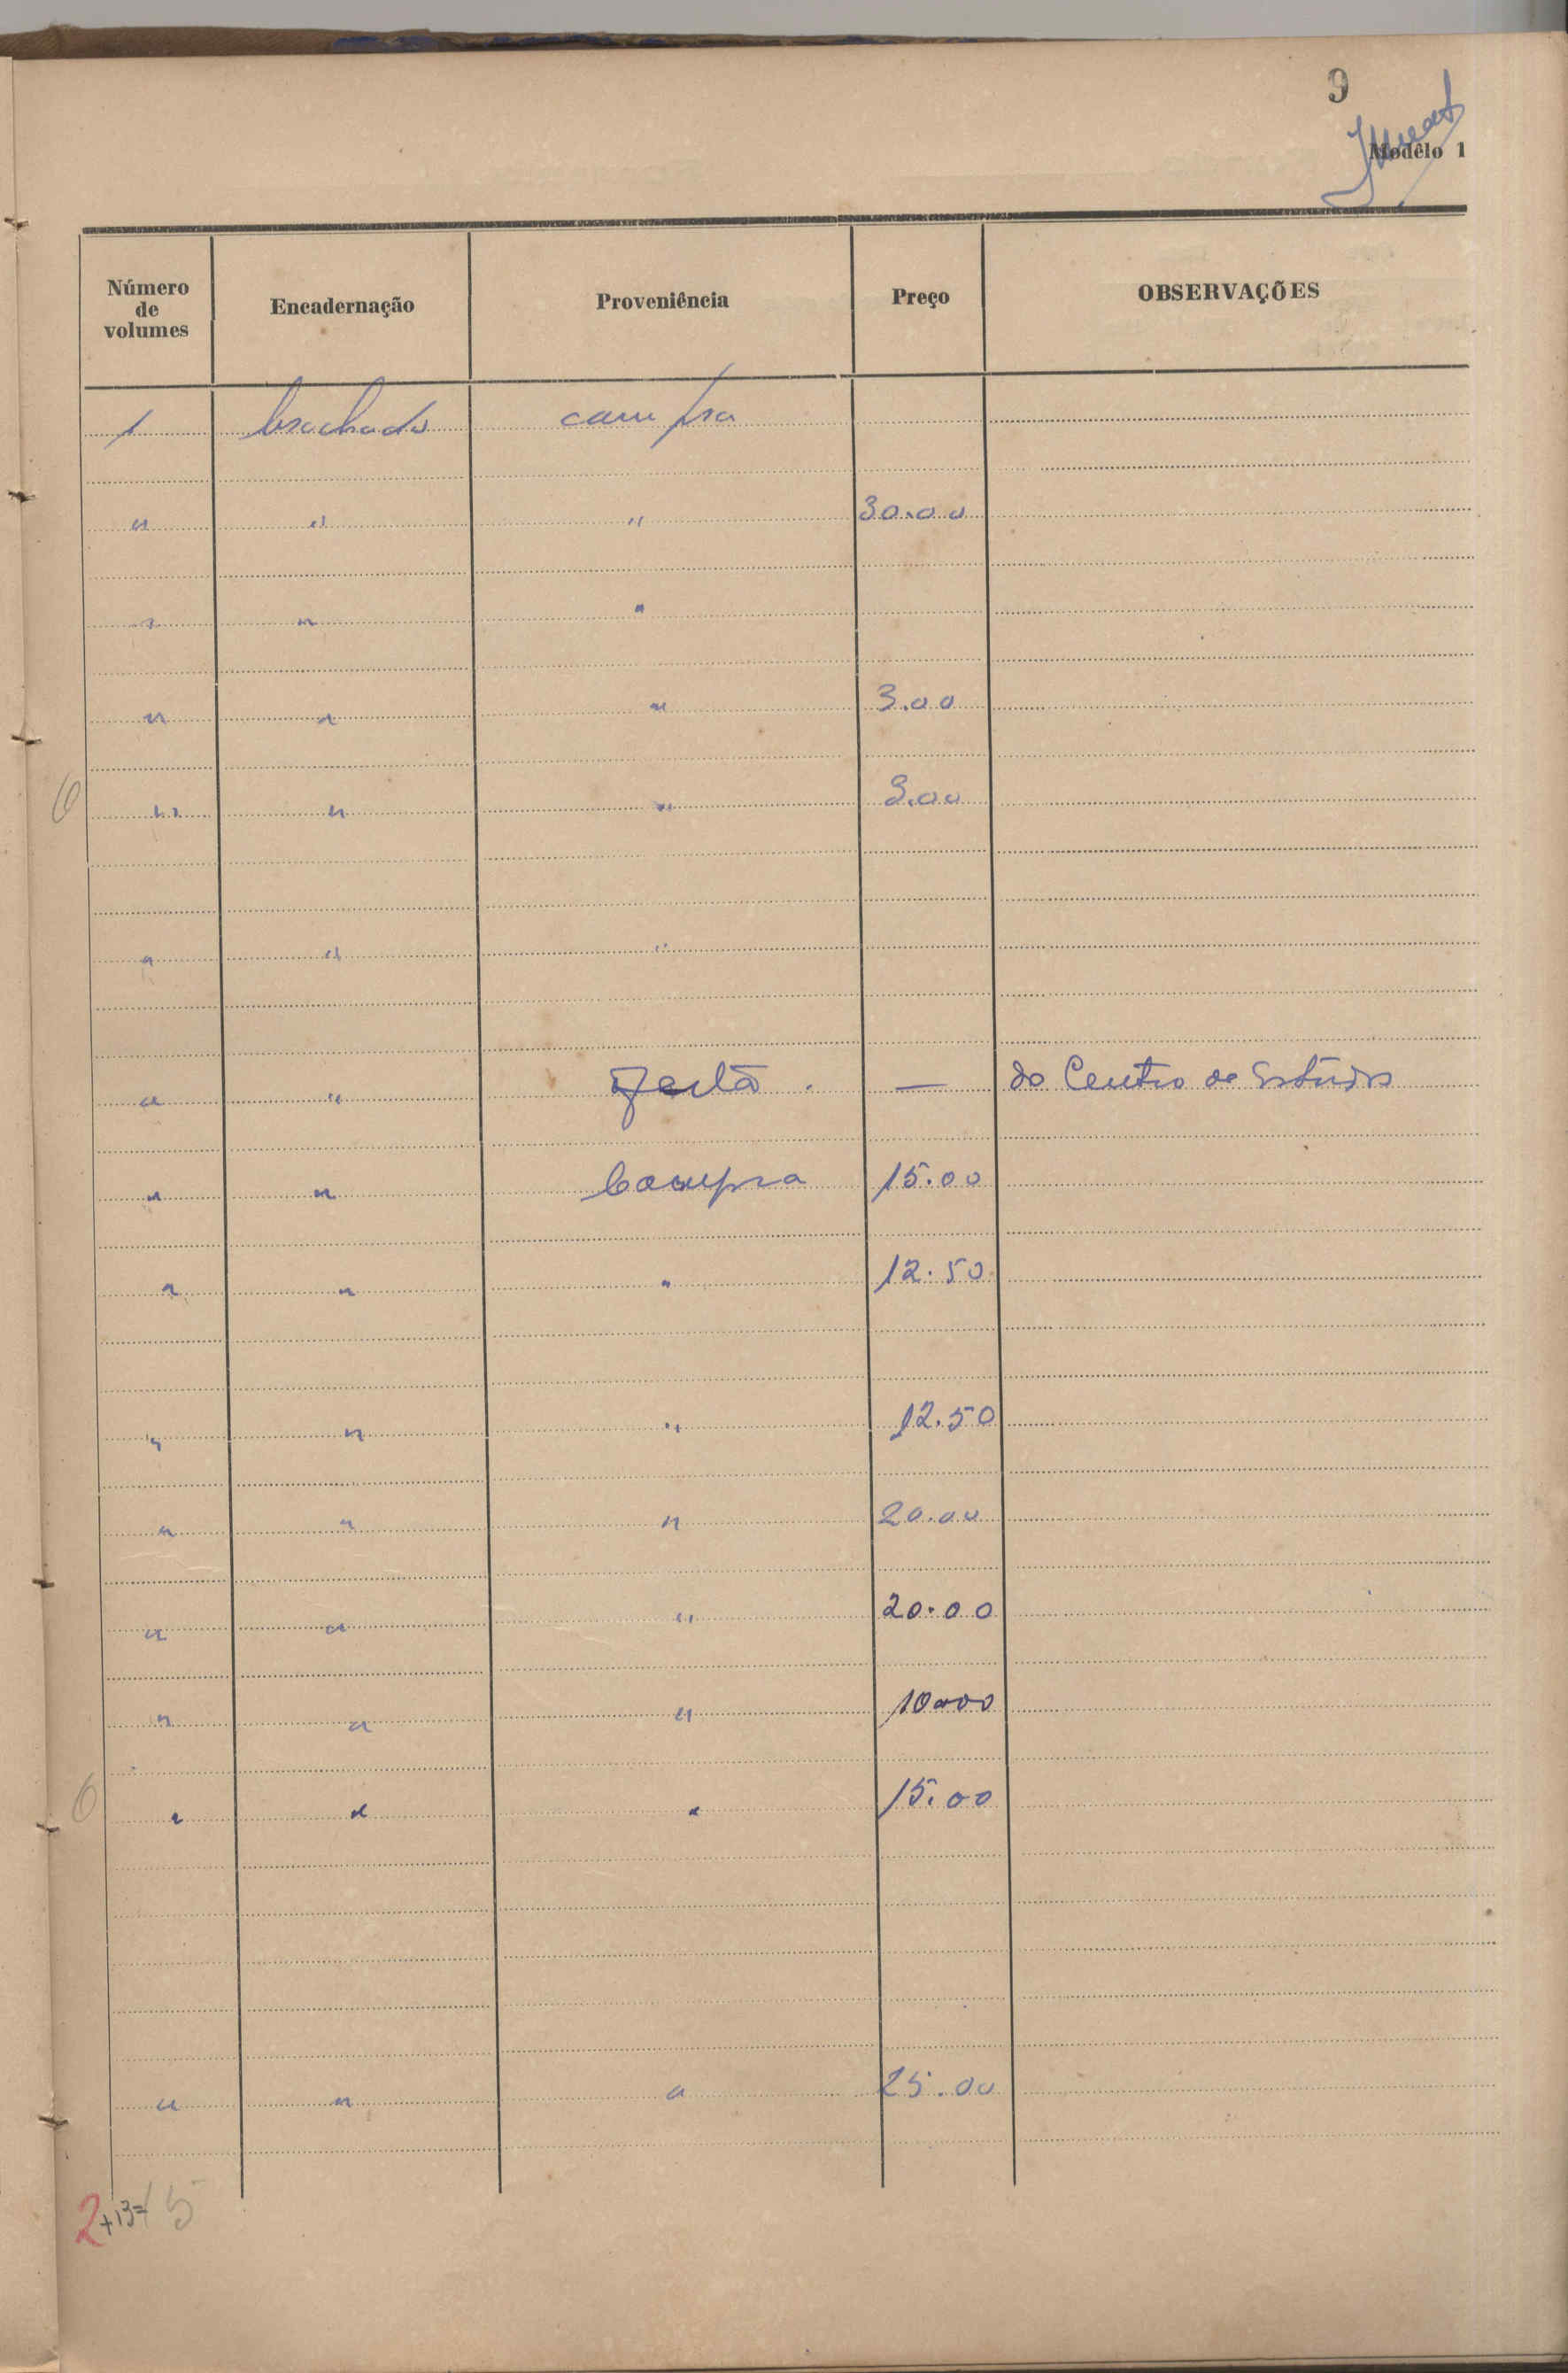 9
Modêlo 1
Número de volumes Encadernação Proveniência Preço OBSERVAÇÕES
1 brochado compra
" " " 30.00
" " "
" " " 3.00
6 " " " 3.00
" " "
" " oferta . — do Centro de Estudos
" " Compra 15.00
" " " 12.50
" " " 12.50
" " " 20.00
" " " 20.00
" " " 10.00
6 " " " 15.00
" " " 25.00
2+13=15